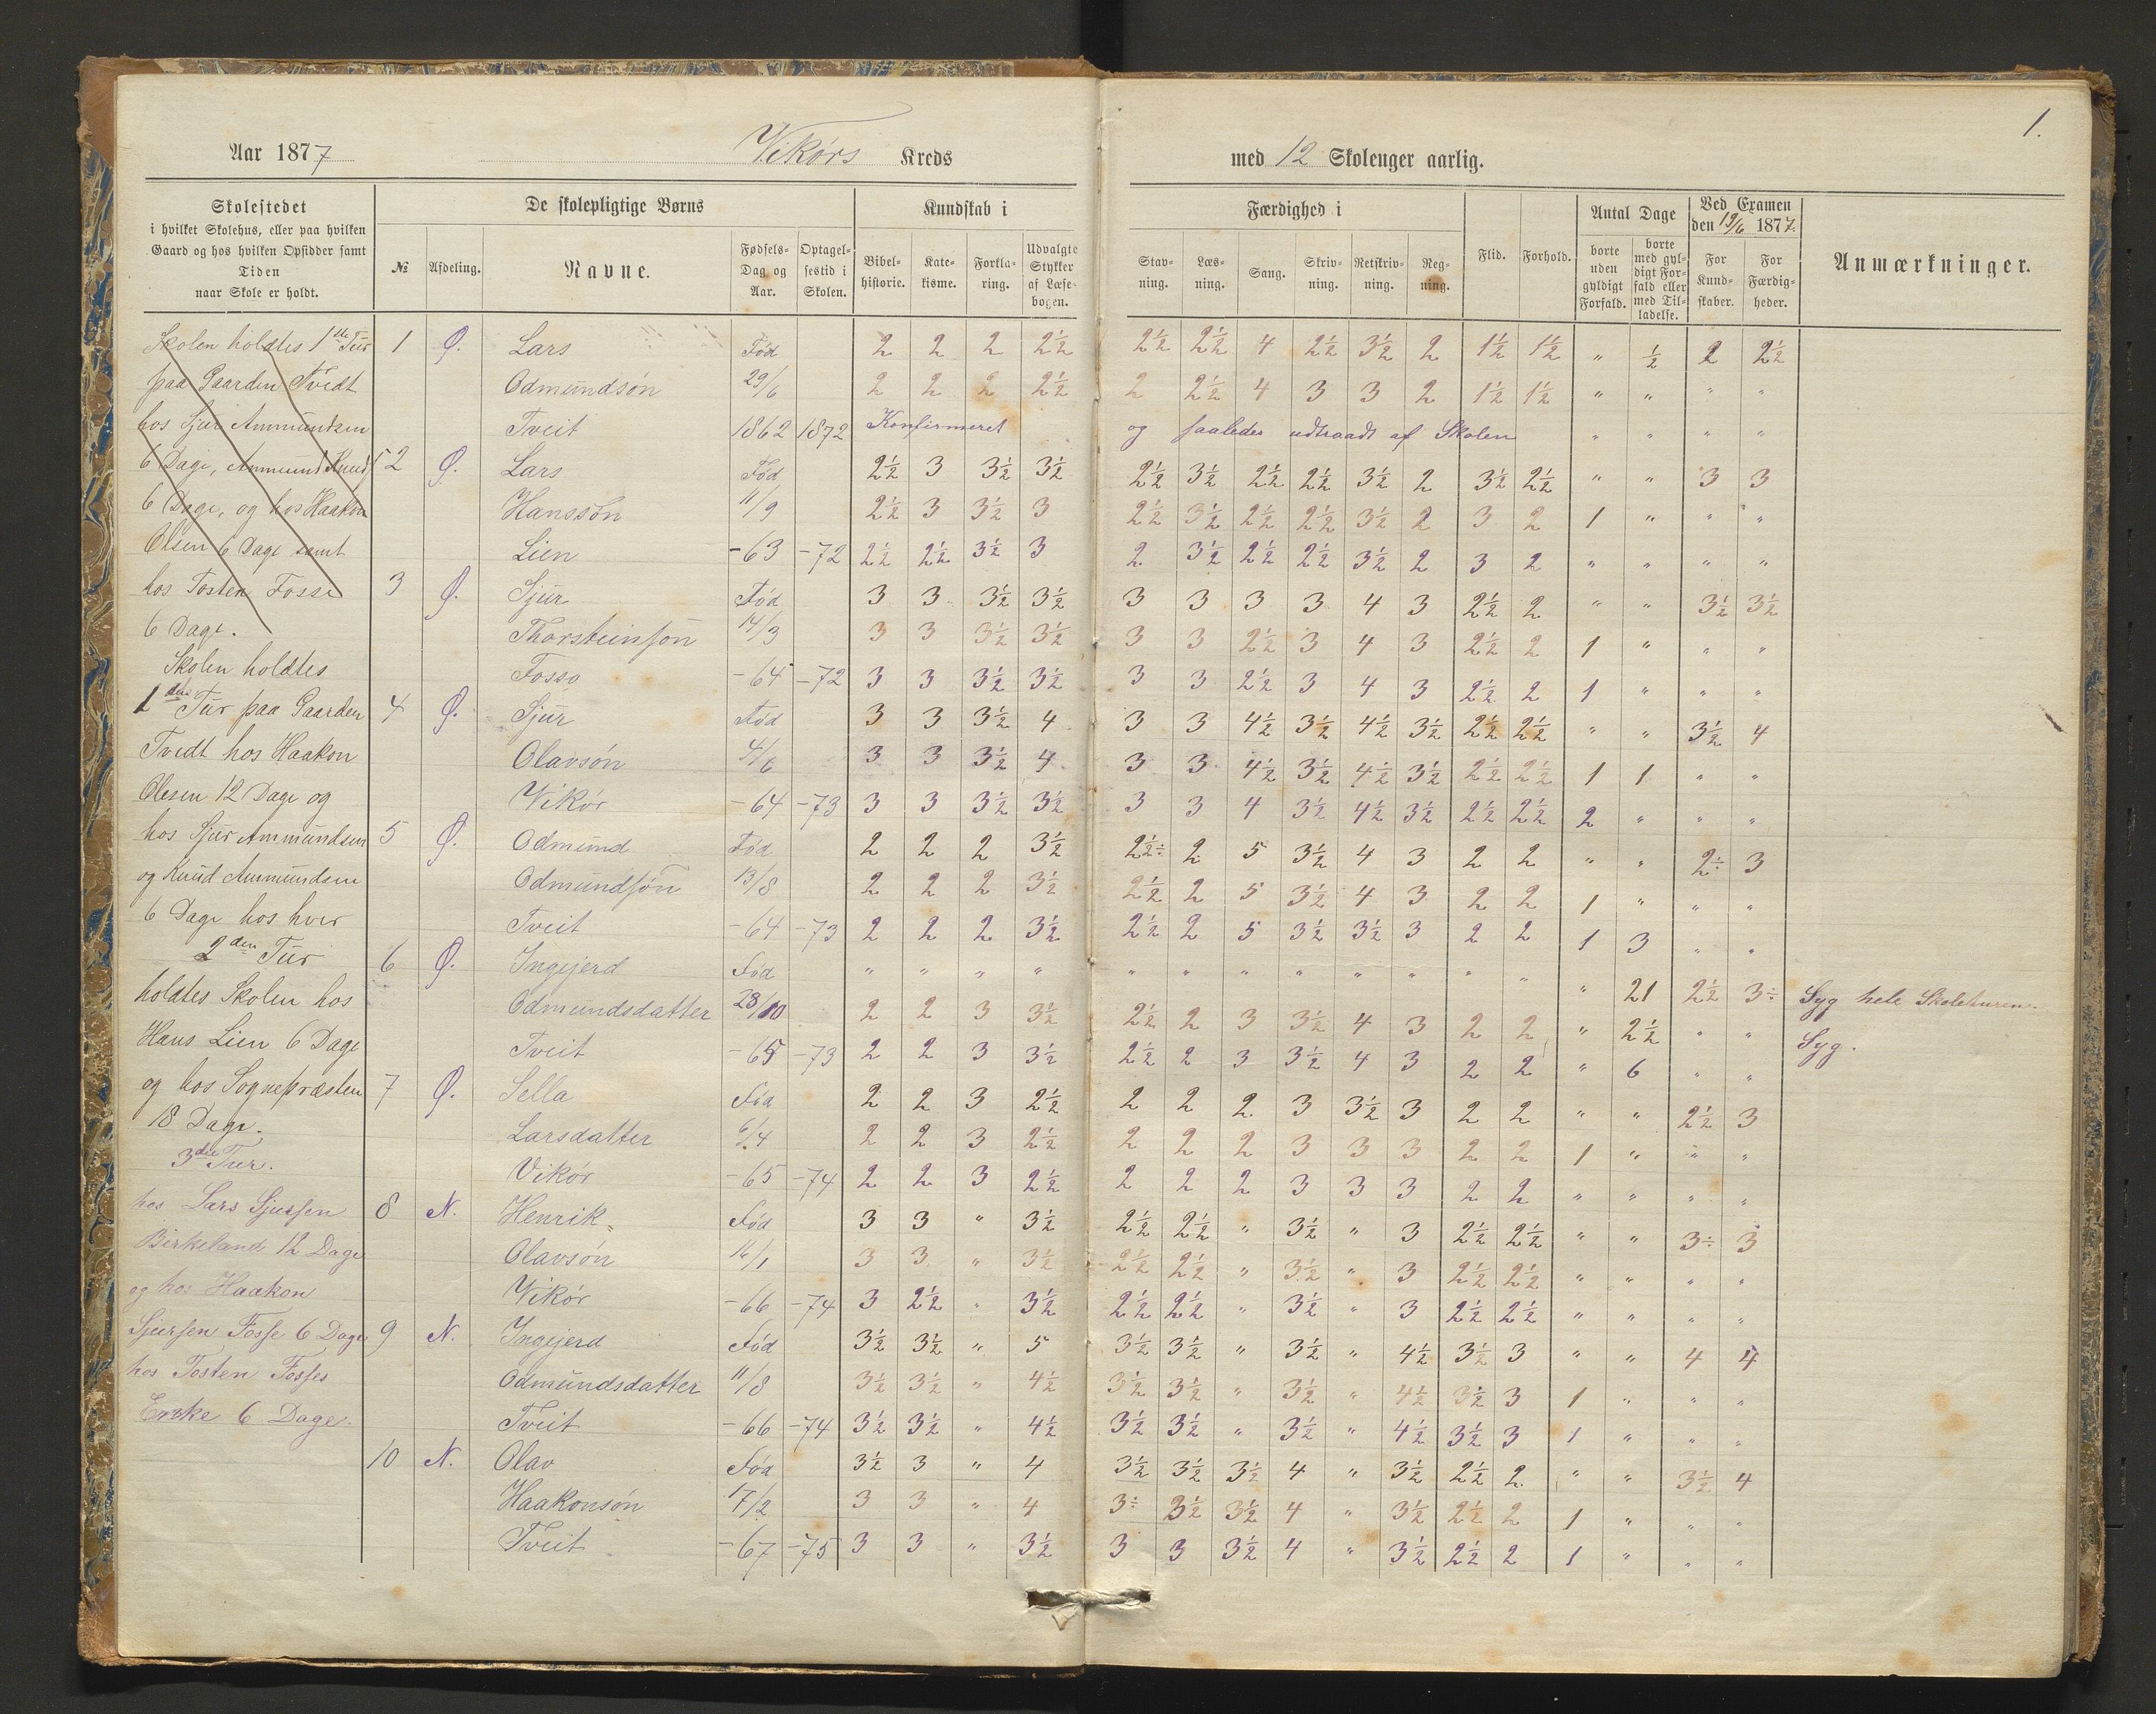 1.
Aar 1877 Vikörs Kreds med 12 Skoleuger aarlig.
Skolestedet
i hvilket Skolehus, eller paa hvilken
Gaard og hos hvilken Opsidder samt
Tiden
naar Skole er holdt.
De skolepligtige Børns
№ Afdeling. Navne. Fødsels-Dag og Aar. Optagelsestid i Skolen.
Kundskab i
Bibelhistorie. Katekisme. Forklaring. Udvalgte Stykker af Læsebogen.
Færdighed i
Stavning. Læsning. Sang. Skrivning. Retskrivning. Regning.
Flid. Forhold.
Antal Dage
borte uden gyldigt Forfald. borte med gyldigt Forfald eller med Tilladelse.
Ved Examen
den 19/6 1877.
For Kundskaber. For Færdigheder.
Anmærkninger.
Skolen holdtes 1ste Tur
paa Gaarden Tvedt
hos Sjur Ammundsen
6 Dage, Ammund Knuds
6 Dage, og hos Haakon
Olsen 6 Dage samt
hos Tosten Fosse
6 Dage.
Skolen holdtes
1ste Tur paa Gaarden
Tvedt hos Haakon
Olesen 12 Dage og
hos Sjur Ammundsen
og Knud Ammundsen
6 Dage hos hver
2den Tur
holdtes Skolen hos
Hans Lien 6 Dage
og hos Sognepræsten
18 Dage.
3die Tur.
hos Lars Sjursen
Birkeland 12 Dage
og hos Haakon
Sjursen Fosse 6 Dage
hos Tosten Fosses
Enke 6 Dage.
1 Ø. Lars Fød 2 2 2 2½ 2½ 2½ 4 2½ 3½ 2 1½ 1½ " ½ 2 2½
Odmundsøn 29/6 2 2 2 2½ 2 2½ 4 3 3 2 1½ 1½ " " " "
Tveit 1862 1872 Konfirmeret og saaledes udtraadt af Skolen " " " "
2 Ø. Lars Fød 2½ 3 3½ 3½ 2½ 3½ 2½ 2½ 3½ 2 3½ 2½ " " 3 3
Hanssøn 11/9 2½ 3 3½ 3 2½ 3½ 2½ 2½ 3½ 2 3 2 1 " " "
Lien -63 -72 2½ 2½ 3½ 3 2 3½ 2½ 2½ 3½ 2 3 2 " " " "
3 Ø. Sjur Fød 3 3 3½ 3½ 3 3 3 3 4 3 2½ 2 " " 3½ 3½
Thorsteinsøn 14/3 3 3 3½ 3½ 3 3 2½ 3 4 3 2½ 2 1 " " "
Fosso -64 -72 3 3 3½ 3½ 3 3 2½ 3 4 3 2½ 2 1 " " "
4 Ø. Sjur Fød 3 3 3½ 4 3 3 4½ 3½ 4½ 3½ 2½ 2½ " " 3½ 4
Olavsøn 4/6 3 3 3½ 4 3 3 4½ 3½ 4½ 3½ 2½ 2½ 1 1 " "
Vikör -64 -73 3 3 3½ 3½ 3 3 4 3½ 4½ 3½ 2½ 2½ 2 " " "
5 Ø. Odmund Fød 2 2 2 3½ 2½÷ 2 5 3½ 4 3 2 2 " " 2÷ 3
Odmundsøn 13/8 2 2 2 3½ 2½ 2 5 3½ 4 3 2 2 1 " " "
Tveit -64 -73 2 2 2 3½ 2½ 2 5 3½ 3½ 3 2 2 1 3 " "
6 Ø. Ingejerd Fød " " " " " " " " " " " " " 21 2½ 3÷ Syg hele Skoleturen.
Odmundsdatter 28/10 2 2 3 3½ 2½ 2 3 3½ 4 3 2 2 " 2½ " " Syg.
Tveit -65 -73 2 2 3 3½ 2½ 2 3 3½ 4 3 2 2 " 6 " "
7 Ø. Sella Fød 2 2 3 2½ 2 2 2 3 3½ 3 2 2 " " 2½ 3
Larsdatter 6/4 2 2 3 2½ 2 2 2 3 3 3 2 2 1 " " "
Vikör -65 -74 2 2 3 2½ 2 2 2 3 3 3 2 2 " " " "
8 N. Henrik Fød 3 3 " 3½ 2½ 2½ " 3½ " 3 2½ 2½ " " 3÷ 3
Olavsøn 16/1 3 3 " 3½ 2½ 2½ " 3½ " 3 2½ 2½ " " " "
Vikör -66 -74 3 2½ " 3½ 2½ 2½ " 3½ " 3 2½ 2½ " " " "
9 N. Ingejerd Fød 3½ 3½ " 5 3½ 3½ " 3½ " 4½ 3½ 3 " " 4 4
Odmundsdatter 11/8 3½ 3½ " 4½ 3½ 3½ " 3½ " 4½ 3½ 3 1 " " "
Tveit -66 -74 3½ 3½ " 4½ 3½ 3½ " 3½ " 4½ 3½ 3 1 " " "
10 N. Olav Fød 3½ 3 " 4 3½ 3½ 3½ 4 " 3½ 2½ 2 " " 3½ 4
Haakonsøn 17/2 3 3 " 4 3÷ 3½ 3½ 4 " 3½ 2½ 2 1 " " "
Tveit -67 -75 3 3 " 3½ 3 3 3½ 4 " 3½ 2½ 2 1 " " "